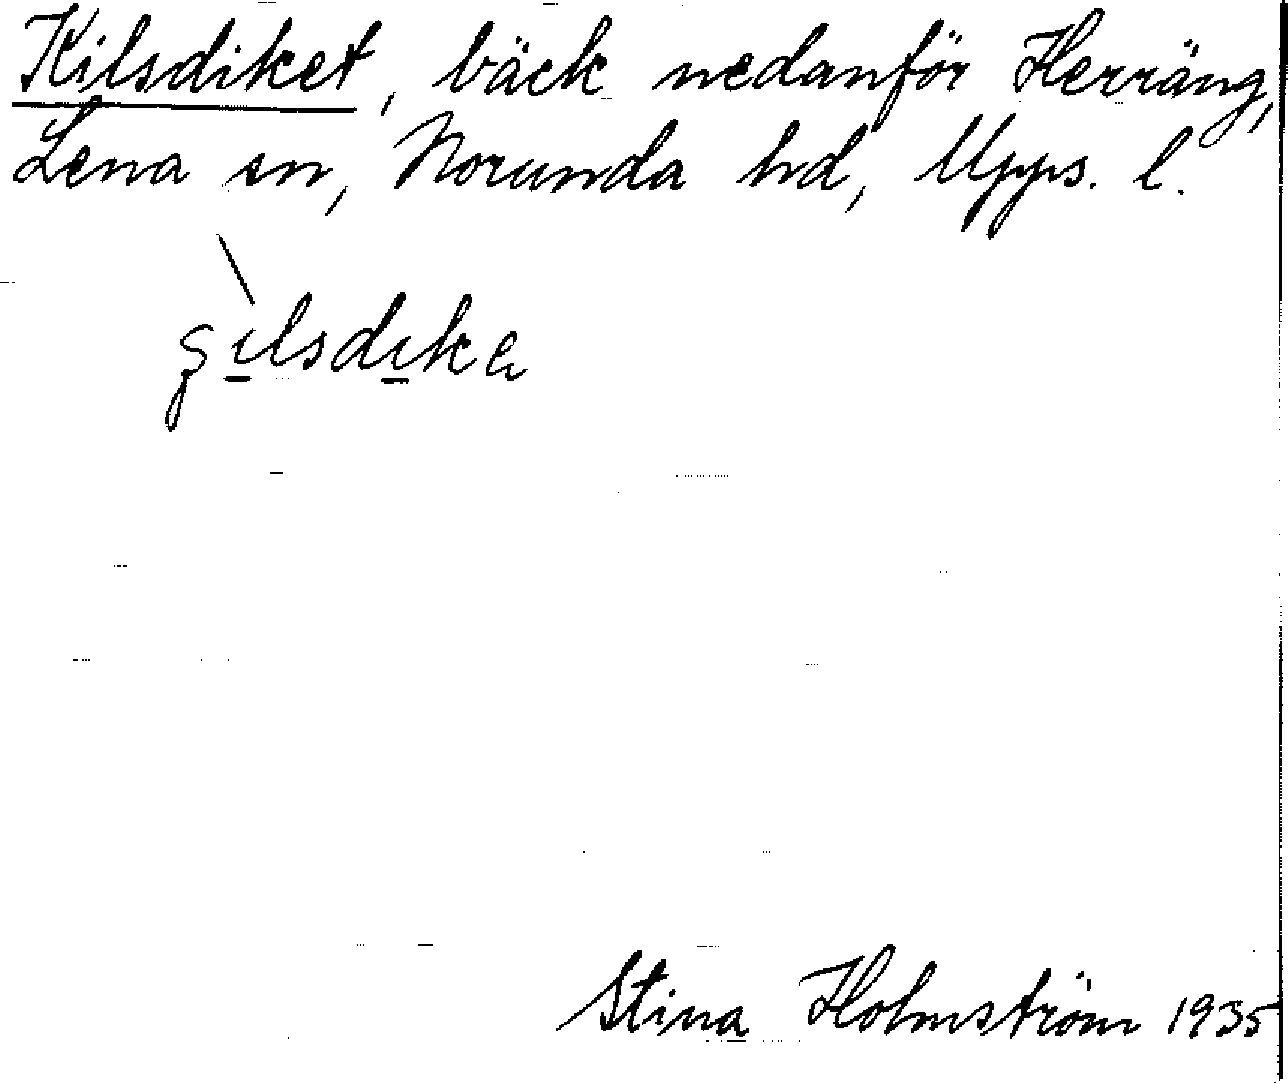 Kilsdiket, bäck nedanför Herräng,
Lena sn, Norunda hd, Upps. l.
Stina Holmström 1935